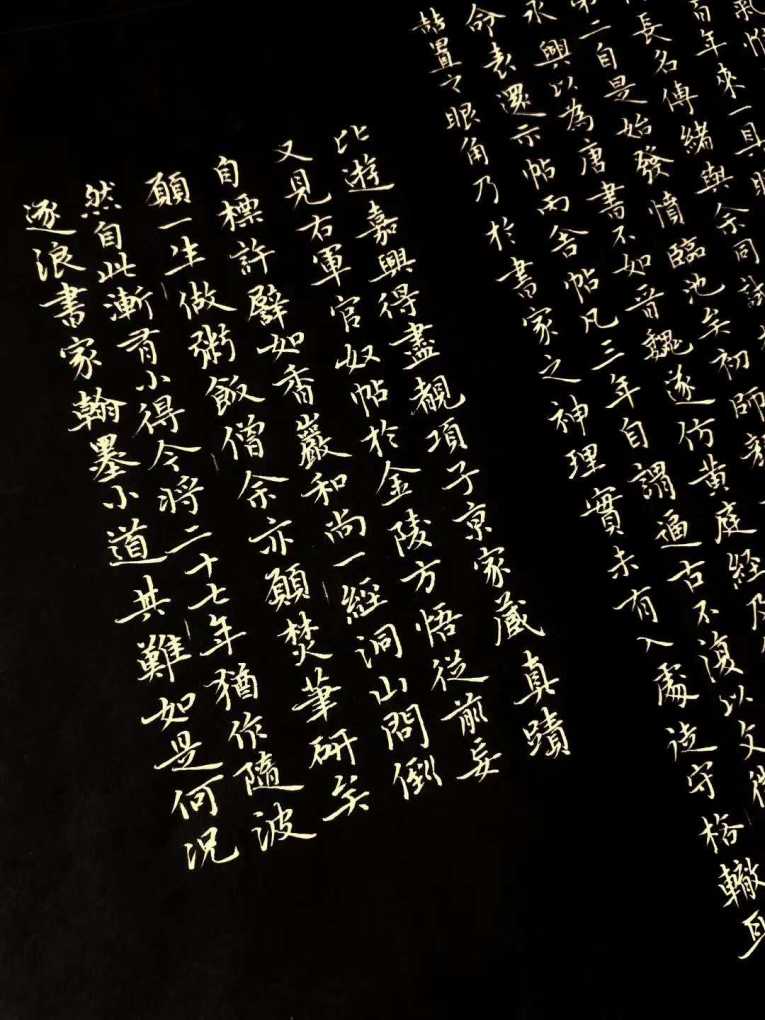 百年來一具
長名傅緒與余同試
二自是始發憤臨池矣初師
永興以為唐書不如晉魏遂仿黃庭經及
命表還示帖丙舍帖凡三年自謂逼古不復以文
置之眼角乃於書家之神理實未有入處徒守格轍耳
比遊嘉興得盡覩項子京家藏真蹟
又見右軍官奴帖於金陵方悟從前妄
自標許譬如香巖和尚一經洞山問倒
願一生做粥飯僧余亦願焚筆研矣
然自此漸有小得今將二十七年猶作隨波
逐浪書家翰墨小道其難如是何況